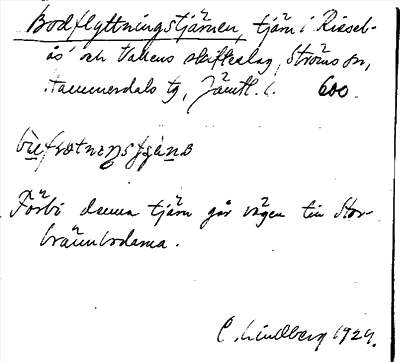 Bodflyttningstjärnen, tjärn i Rissel-
ås och Vallens skifteslag, Ströms sn,
Hammerdals tg, Jämtl. l. 600.
Förbi denna tjärn går vägen till Stor-
brännbodarna.
C. Lindberg 1924.